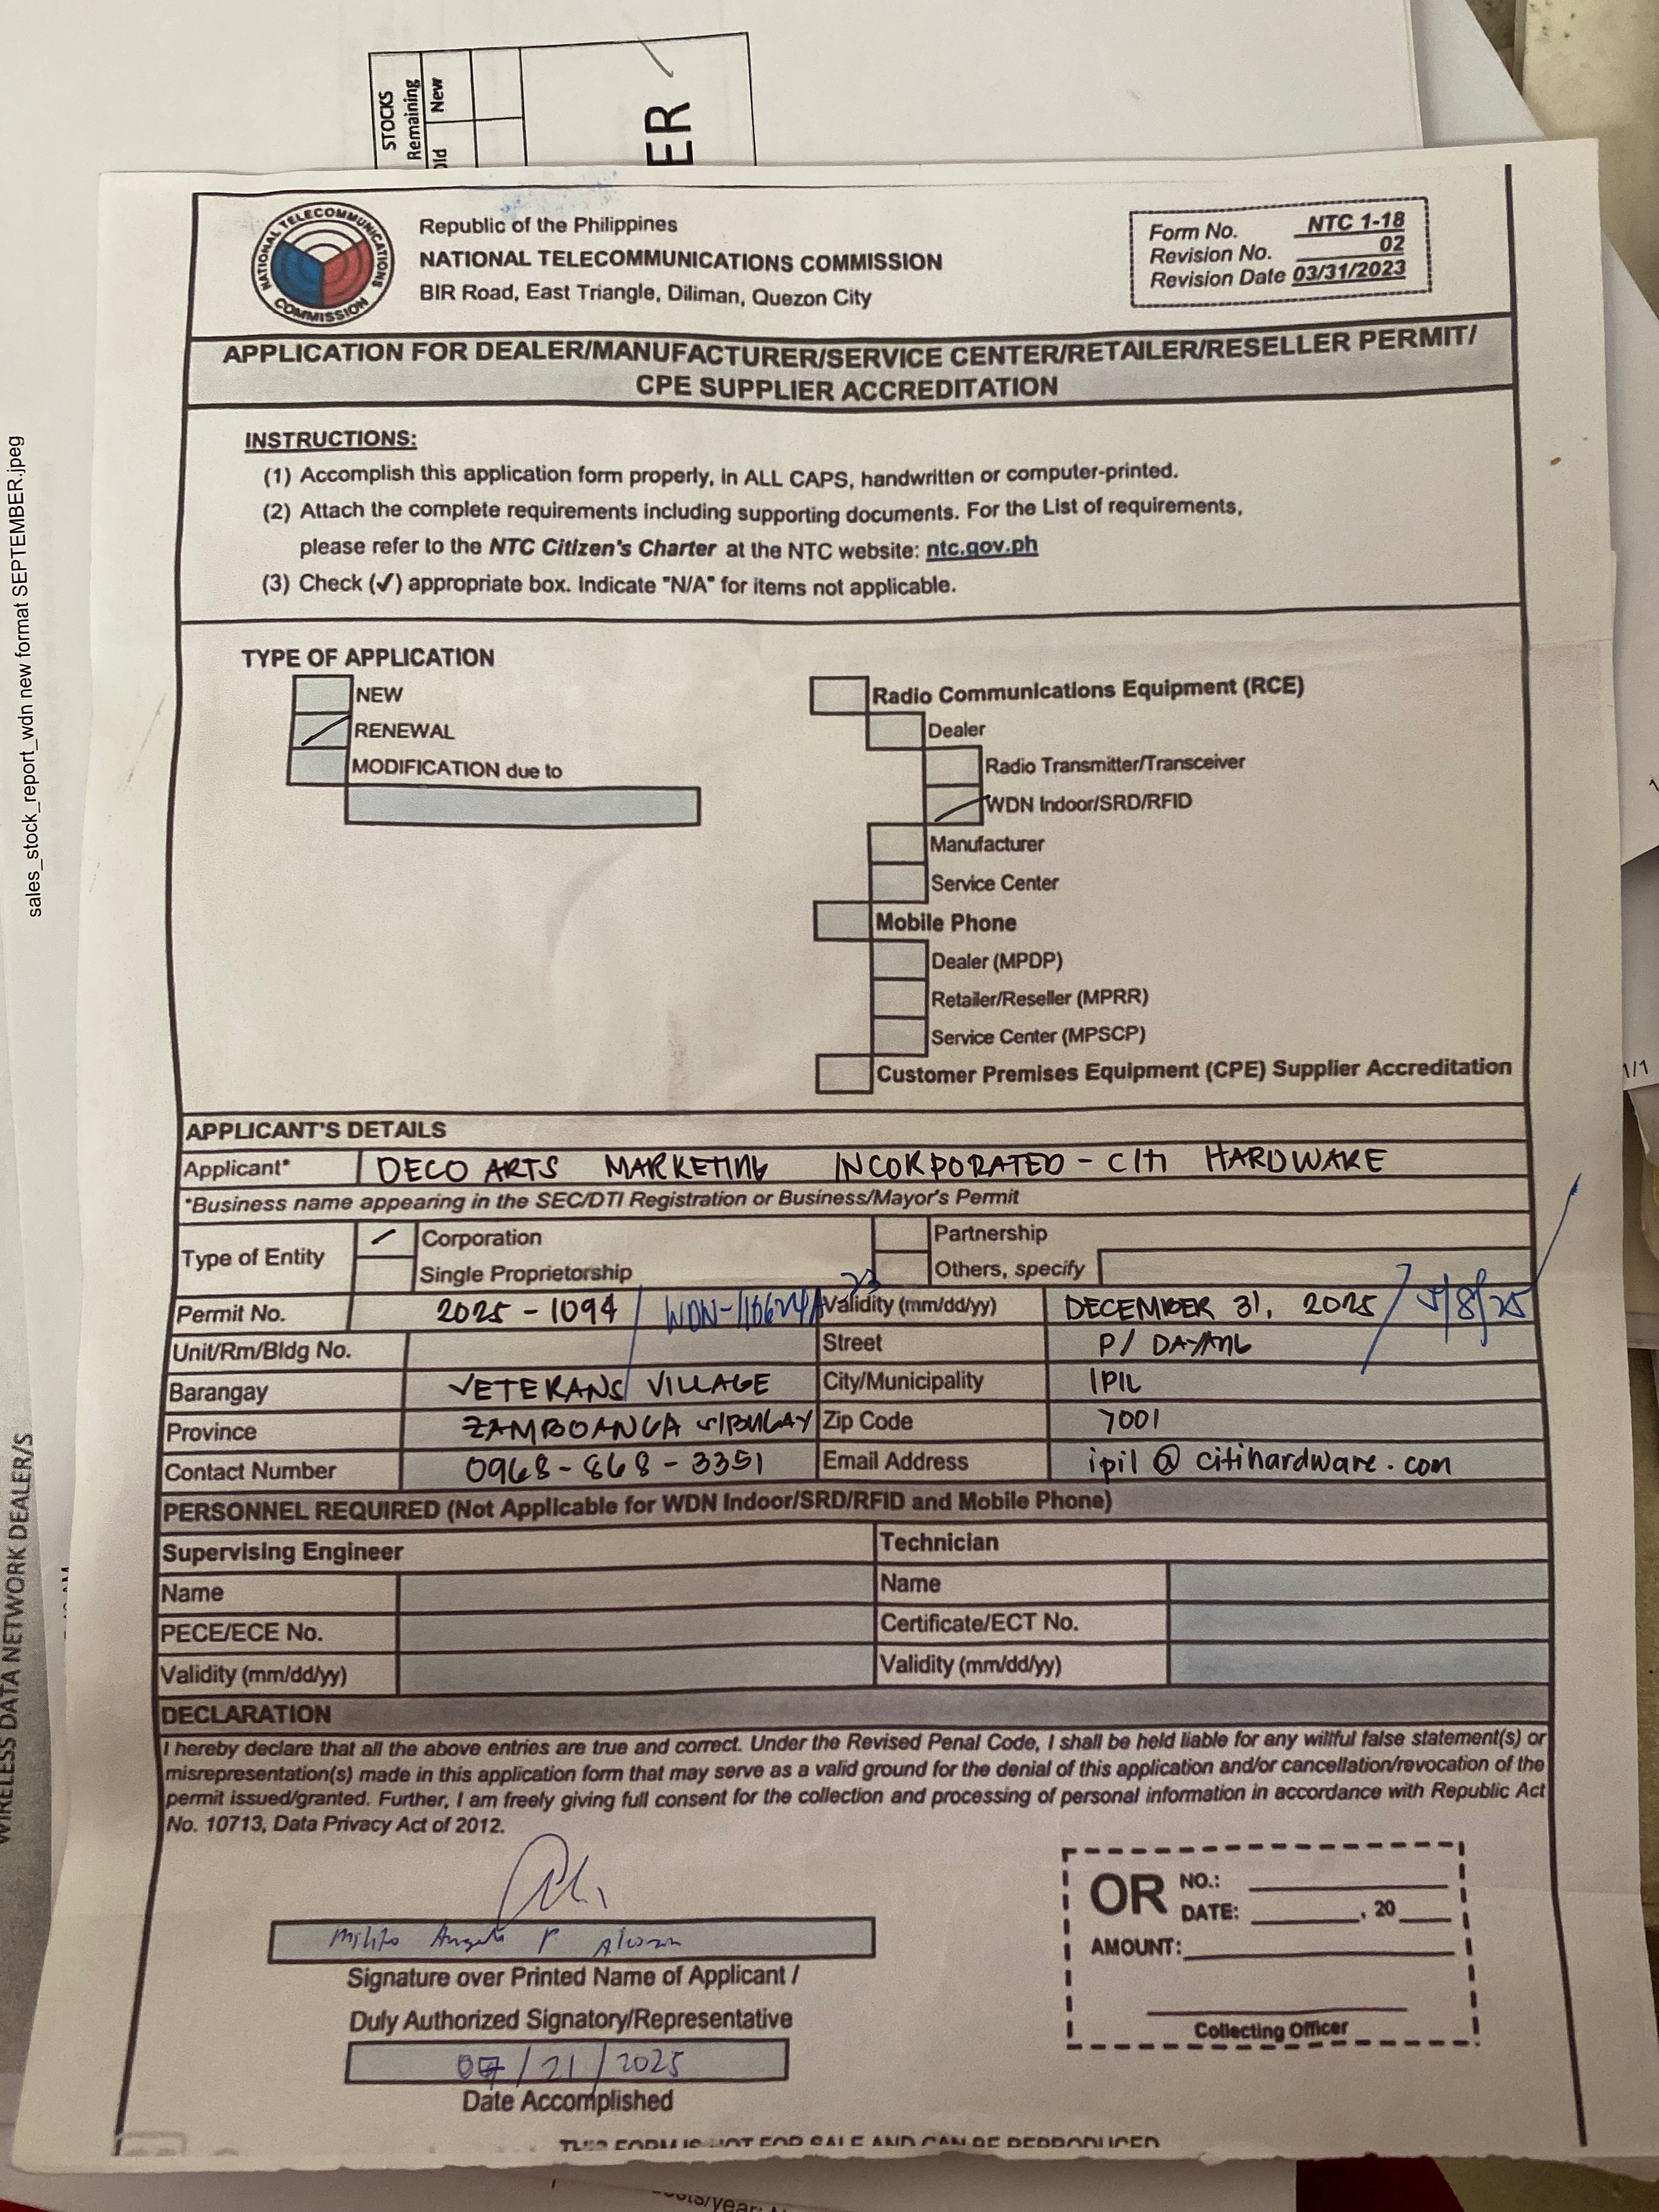 STOCKS
Remaining
Old New
ER
sales_stock_report_wdn new format SEPTEMBER.jpeg
WIRELESS DATA NETWORK DEALER/S
1/1
NATIONAL TELECOMMUNICATIONS COMMISSION
Republic of the Philippines
NATIONAL TELECOMMUNICATIONS COMMISSION
BIR Road, East Triangle, Diliman, Quezon City
Form No. NTC 1-18
Revision No. 02
Revision Date 03/31/2023
APPLICATION FOR DEALER/MANUFACTURER/SERVICE CENTER/RETAILER/RESELLER PERMIT/
CPE SUPPLIER ACCREDITATION
INSTRUCTIONS:
(1) Accomplish this application form properly, in ALL CAPS, handwritten or computer-printed.
(2) Attach the complete requirements including supporting documents. For the List of requirements,
please refer to the NTC Citizen's Charter at the NTC website: ntc.gov.ph
(3) Check (✓) appropriate box. Indicate "N/A" for items not applicable.
TYPE OF APPLICATION
NEW
RENEWAL
MODIFICATION due to
Radio Communications Equipment (RCE)
Dealer
Radio Transmitter/Transceiver
WDN Indoor/SRD/RFID
Manufacturer
Service Center
Mobile Phone
Dealer (MPDP)
Retailer/Reseller (MPRR)
Service Center (MPSCP)
Customer Premises Equipment (CPE) Supplier Accreditation
APPLICANT'S DETAILS
Applicant* DECO ARTS MARKETING INCORPORATED - CITI HARDWARE
*Business name appearing in the SEC/DTI Registration or Business/Mayor's Permit
Type of Entity Corporation Partnership
Single Proprietorship Others, specify
Permit No. 2025 - 1094 / Validity (mm/dd/yy) DECEMBER 31, 2025 / 5/8/25
Unit/Rm/Bldg No. Street P/ DAYANG
Barangay VETERANS VILLAGE City/Municipality IPIL
Province ZAMBOANGA SIBUGAY Zip Code 7001
Contact Number 0968-868-3351 Email Address ipil @ citihardware.com
PERSONNEL REQUIRED (Not Applicable for WDN Indoor/SRD/RFID and Mobile Phone)
Supervising Engineer Technician
Name Name
PECE/ECE No. Certificate/ECT No.
Validity (mm/dd/yy) Validity (mm/dd/yy)
DECLARATION
I hereby declare that all the above entries are true and correct. Under the Revised Penal Code, I shall be held liable for any willful false statement(s) or
misrepresentation(s) made in this application form that may serve as a valid ground for the denial of this application and/or cancellation/revocation of the
permit issued/granted. Further, I am freely giving full consent for the collection and processing of personal information in accordance with Republic Act
No. 10713, Data Privacy Act of 2012.
Signature over Printed Name of Applicant /
Duly Authorized Signatory/Representative
07/21/2025
Date Accomplished
OR NO.:
DATE: , 20
AMOUNT:
Collecting Officer
THIS FORM IS NOT FOR SALE AND CAN BE REPRODUCED